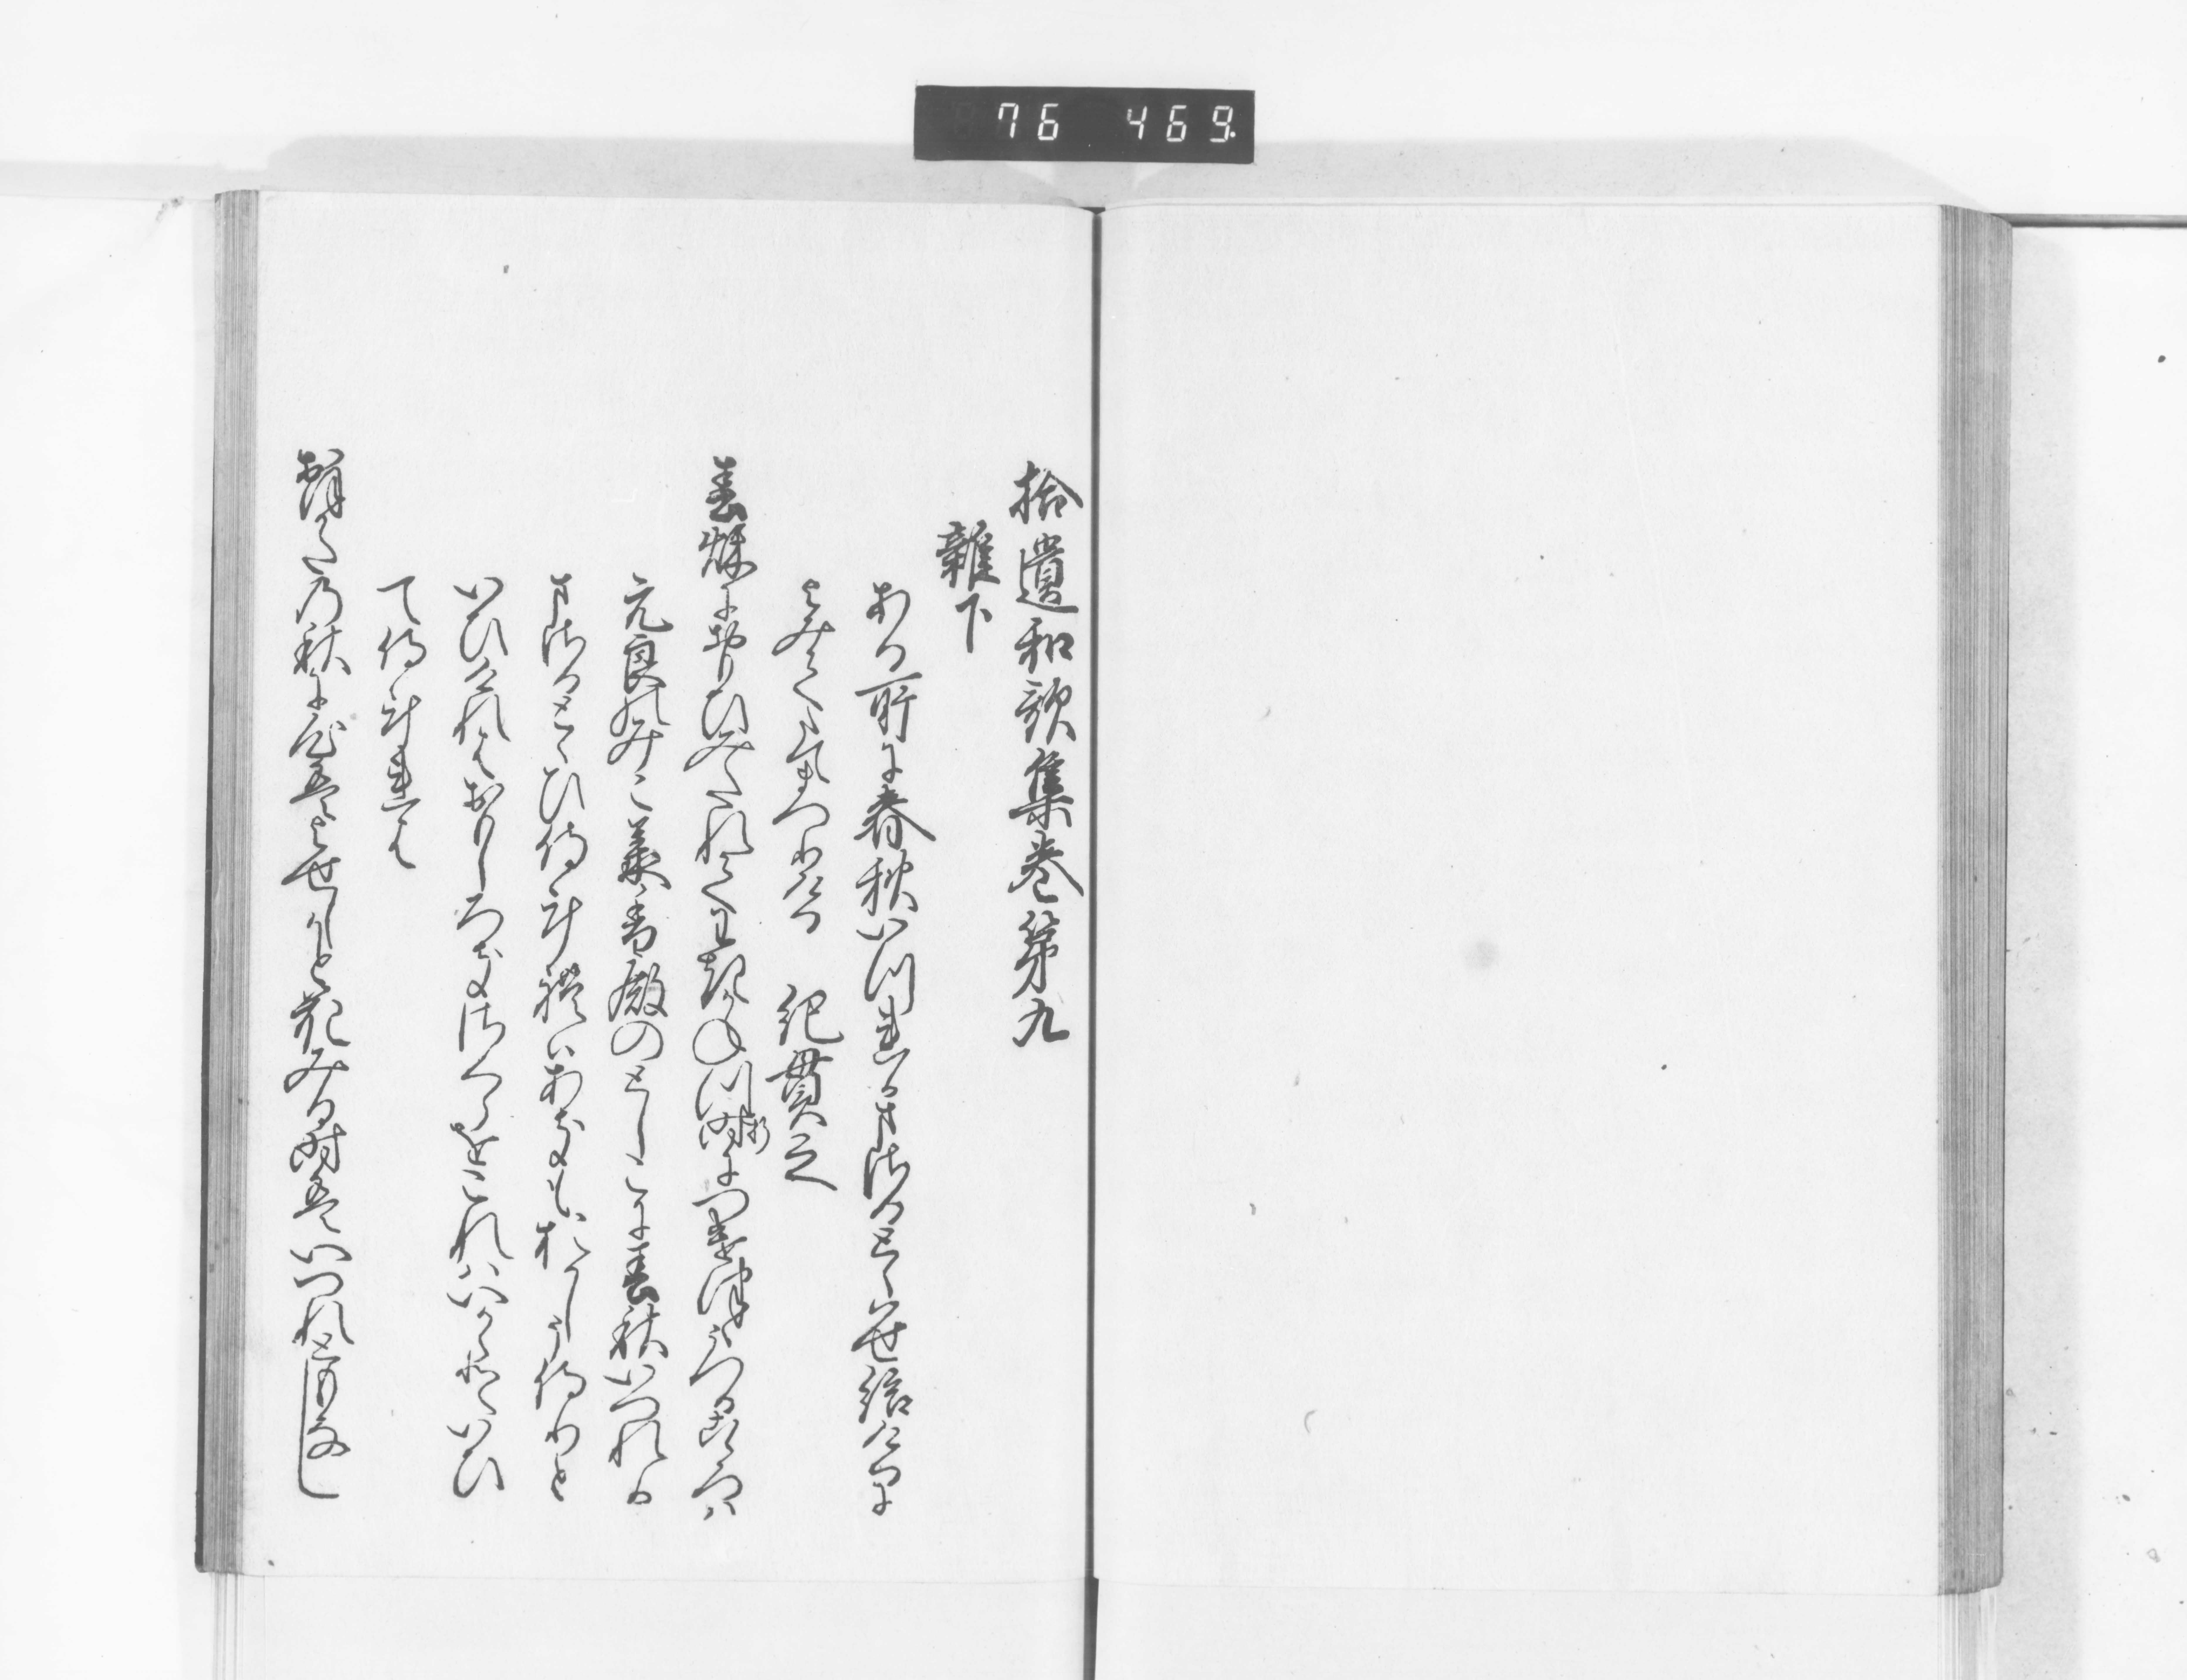 76 469.
拾遺和歌集巻第九
雑下
ある所に春秋いつれかまされるとゝはせ給けるに
よみてたてまつりける 紀貫之
春秋におもひみたれてわきかねつ時につけつゝうつる心は
元良のみこ承香殿のとしこに春秋いつれか
まされるとゝひ侍けれはあきもおかしう侍りと
いひけれはおもしろきさくらをこれはいかゝといひ
て侍けれは
おほかたの秋に心はよせしかと花みる時はいつれともなし